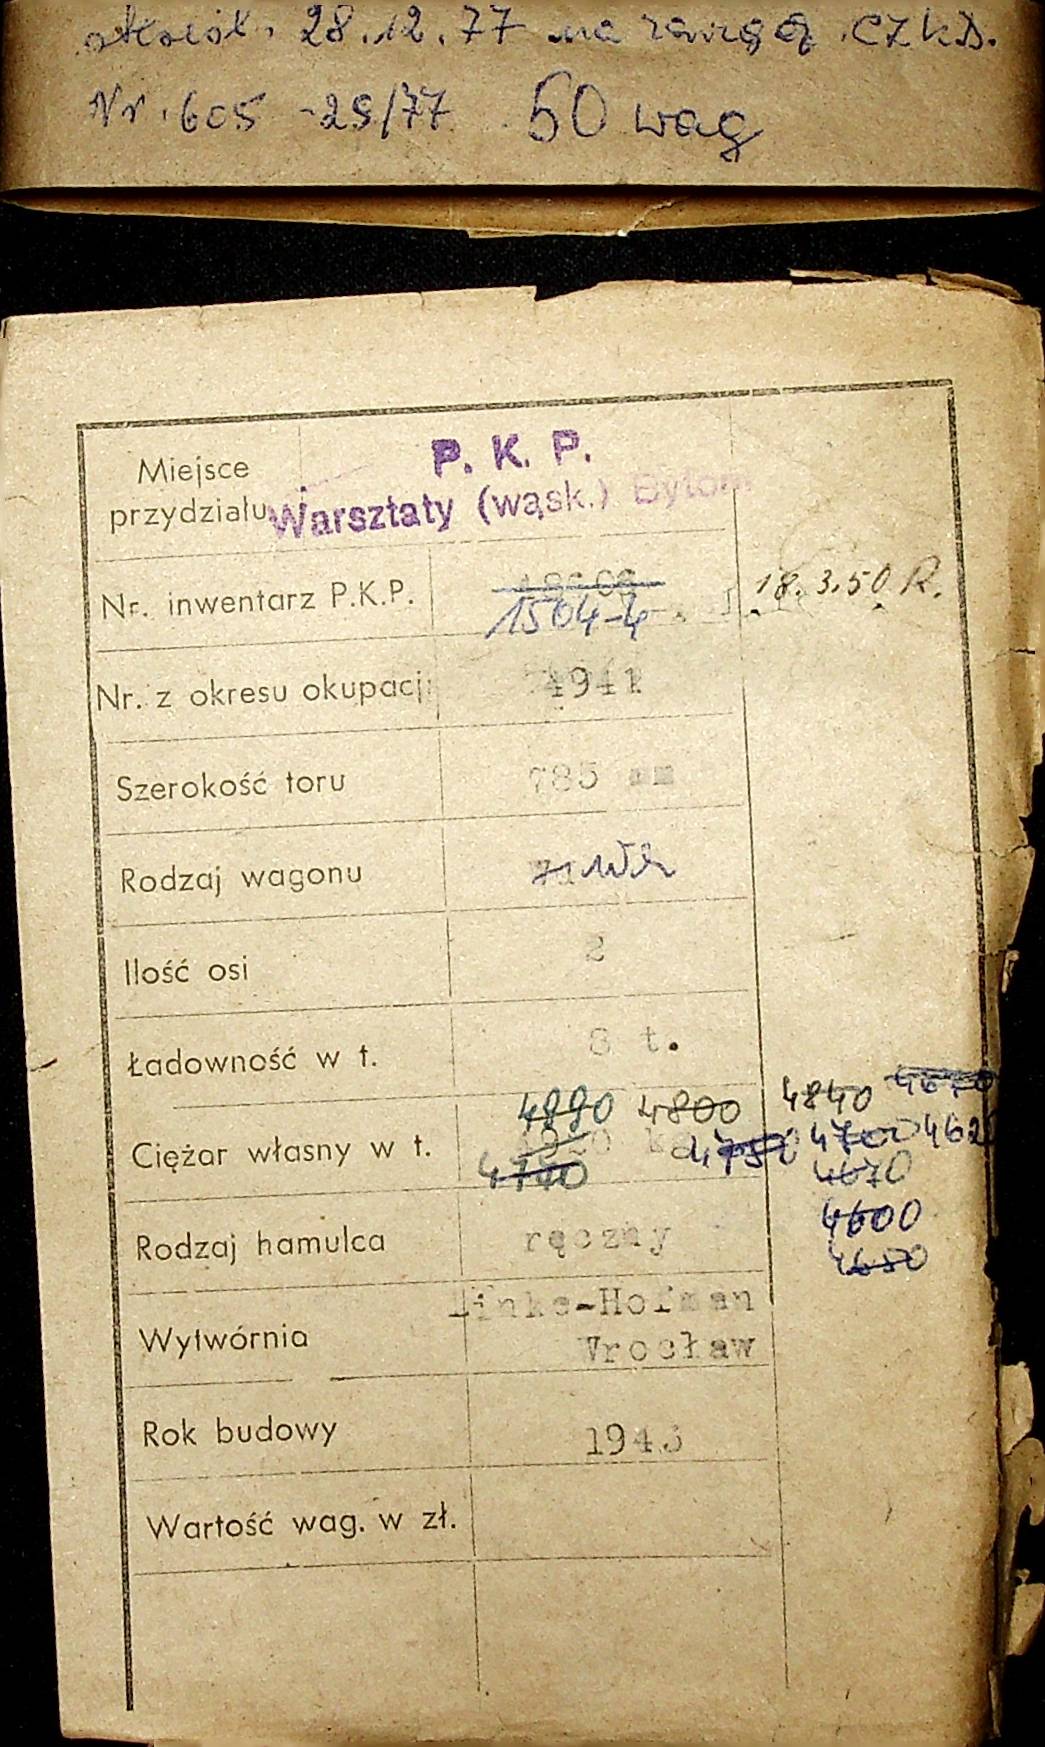 28.12.77 na CZKD.
Nr. 605 -29/77 50 wag
P. K. P.
Miejsce
przydziału Warsztaty (wąsk.) Bytom
Nr. inwentarz P.K.P. 1504-4 18.3.50 R.
Nr. z okresu okupacji 4941
Szerokość toru 785 mm
Rodzaj wagonu
Ilość osi 2
Ładowność w t. 8 t.
4890 4800 4840 4670
Ciężar własny w t. kg 4750 4700 4620
4740 4670
4600
Rodzaj hamulca ręczny 4650
Linke-Hofman
Wytwórnia Wrocław
Rok budowy 1943
Wartość wag. w zł.